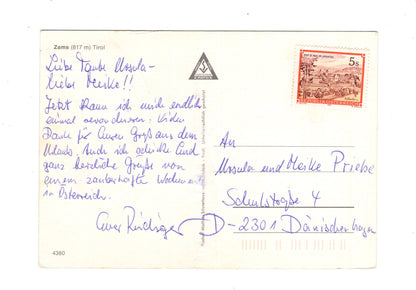 Zams (817 m) Tirol
Liebe Tante Ursula -
liebe Meike!!
Jetzt kann ich mich endlich
einmal revanchieren. Vielen
Dank für Euren Gruß aus dem
Urlaub. Auch ich schicke Euch
ganz herzliche Grüße von
einem zauberhaften Wochenende
in Österreich.
Euer Rüdiger
4380
5s
An
Ursula und Meike Priebe
Schulstraße 4
D-2301 Dänischenhagen